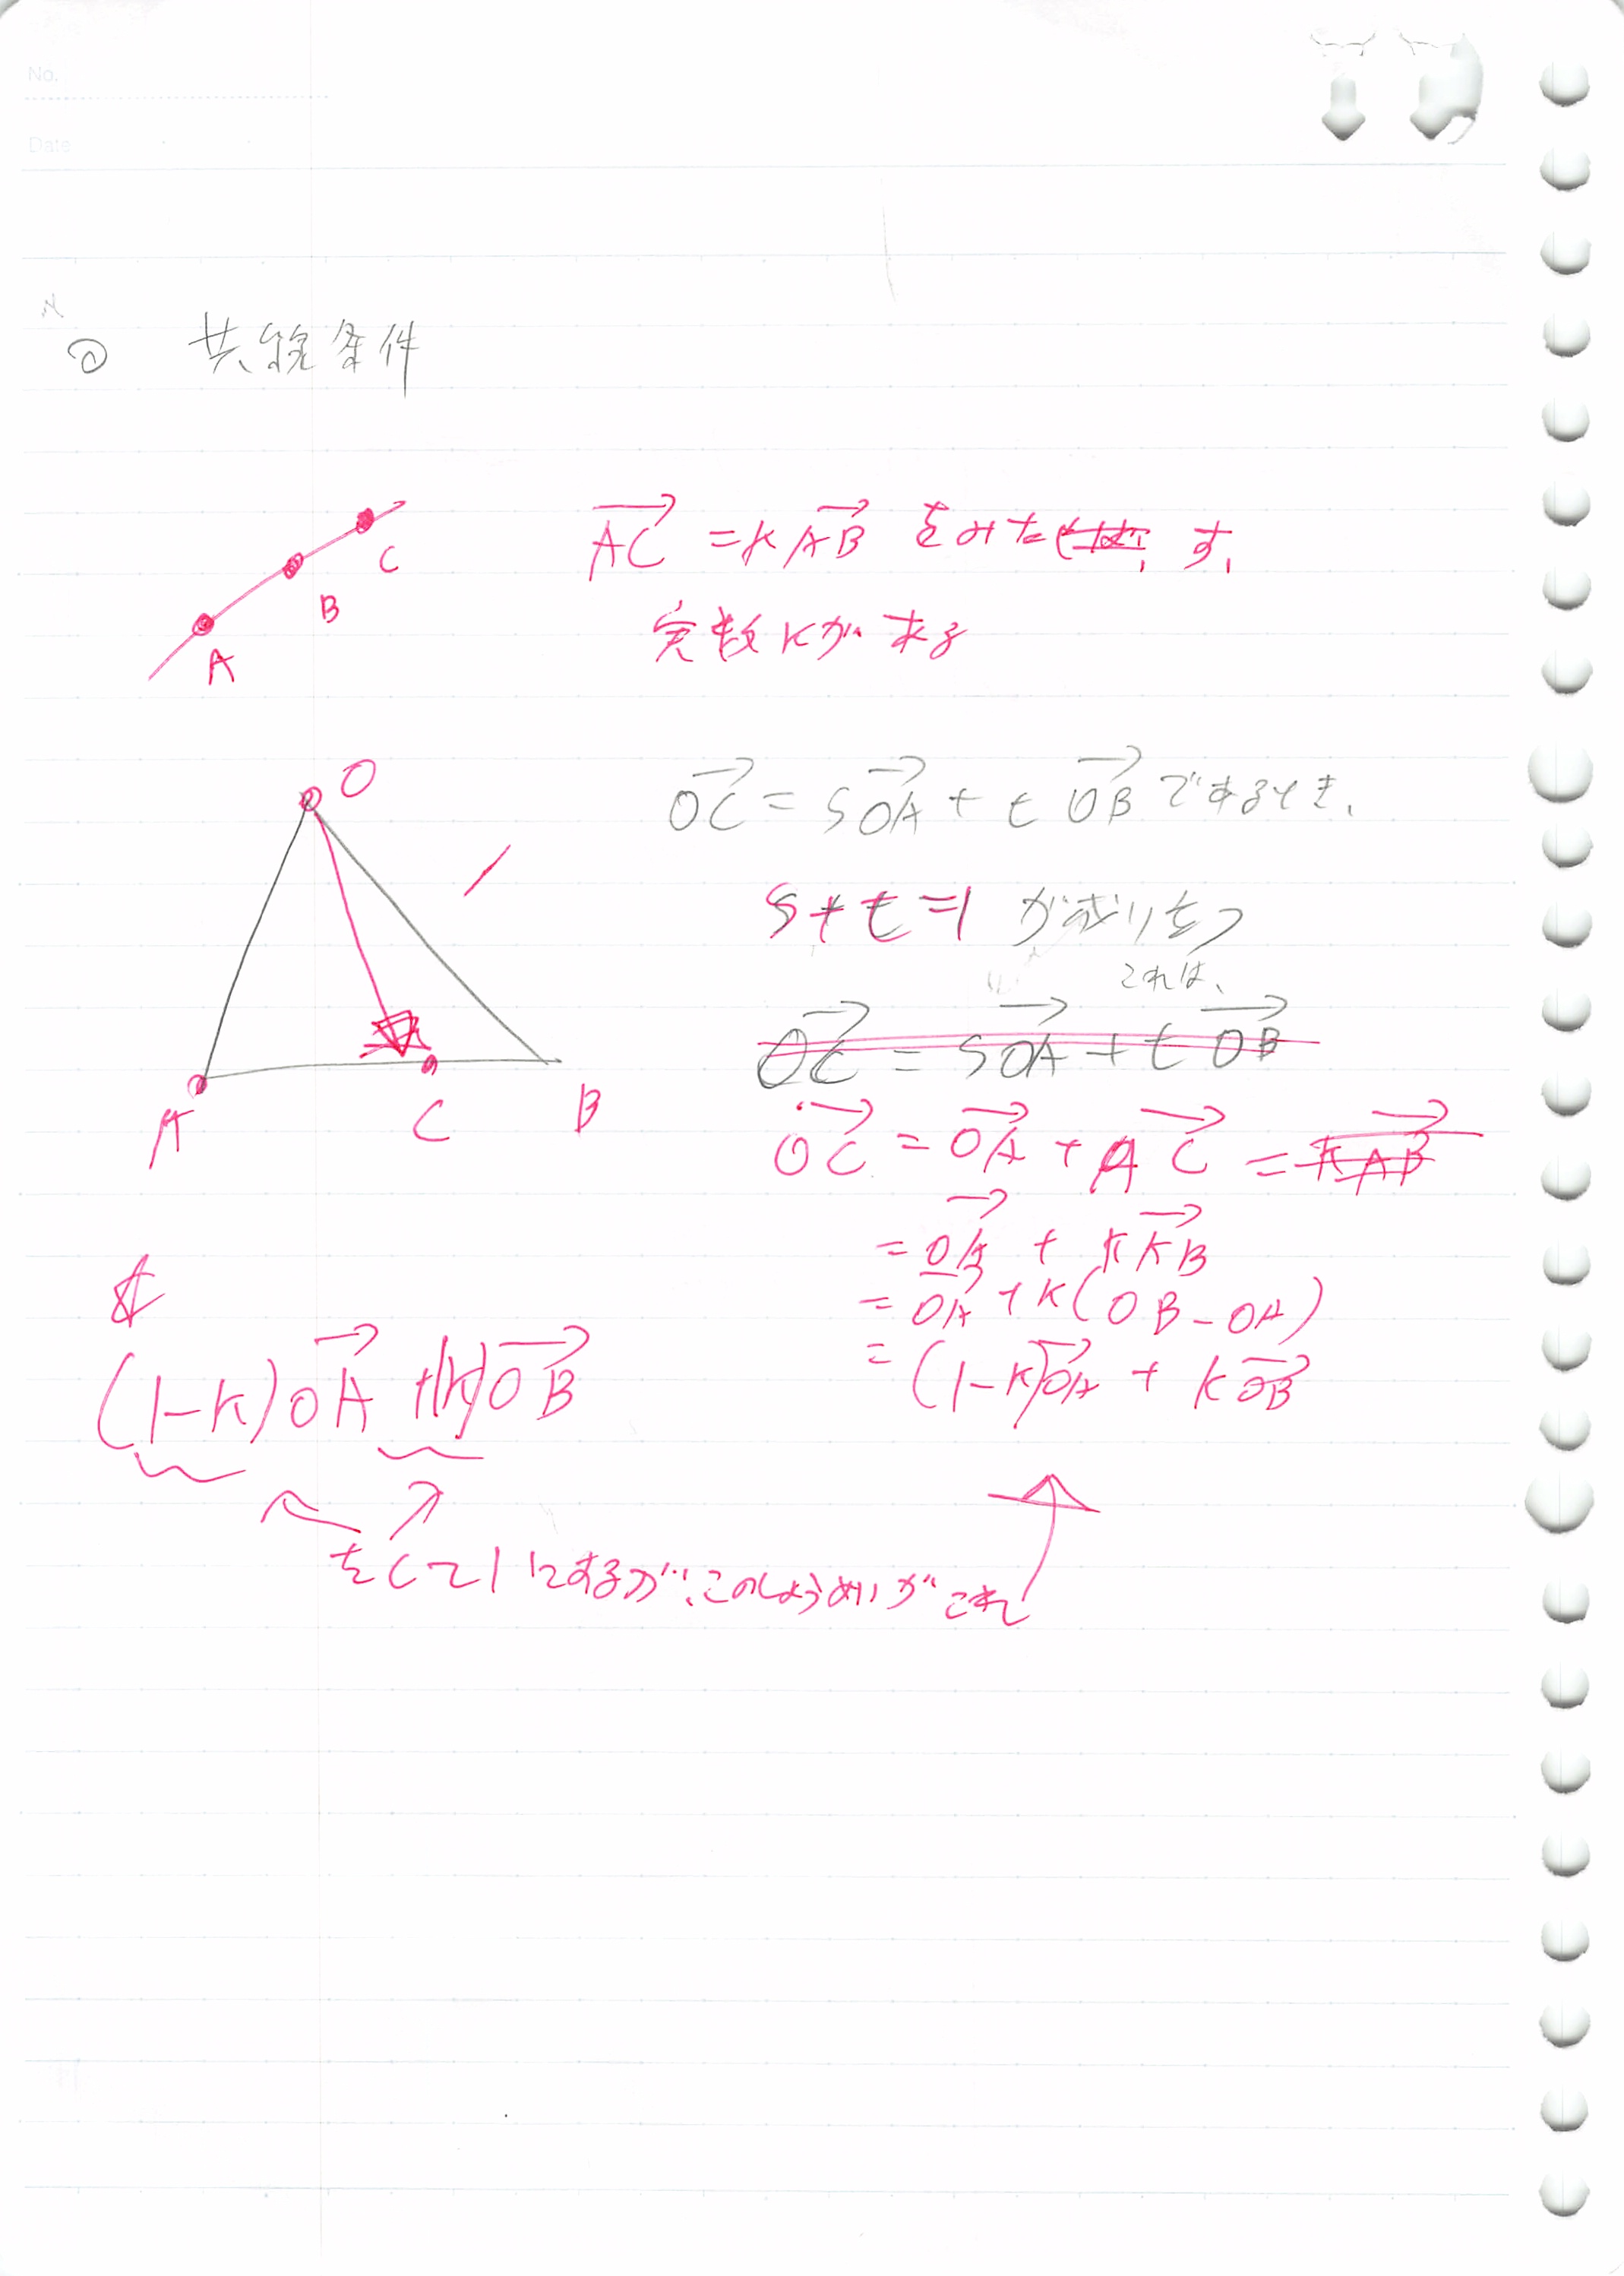 No.
Date
共線条件
AC = k AB をみたす、
実数 kが ある
A
B
C
OC = sOA + t OB であるとき、
s + t = 1 が成り立つ
これは、
OC = sOA + t OB
O
A
C
B
OC = OA + AC = k AB
= OA + k AB
= OA + k(OB - OA)
= (1-k)OA + k OB
(1-k)OA + (k)OB
をして1にするが、このしょうめいが これ